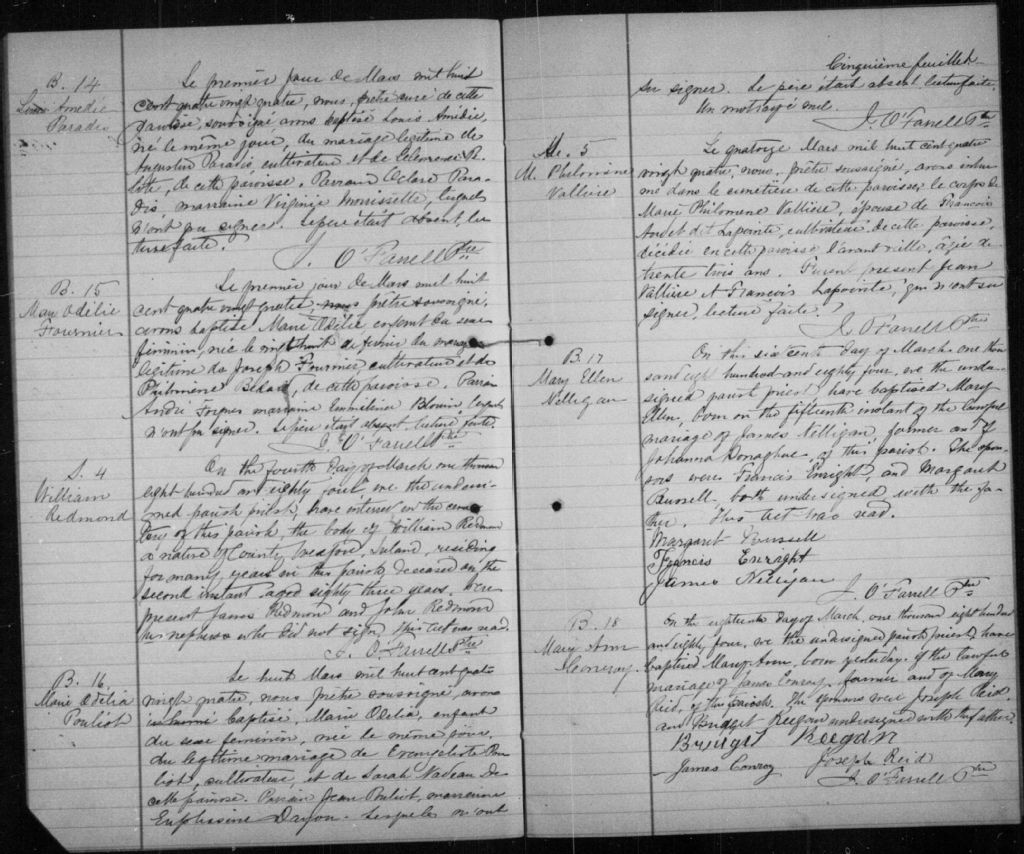 B. 14
Louis Amédie
Paradis
Le premier jour de Mars mil huit
cent quatre vingt quatre, nous, prêtre curé de cette
paroisse, soussigné, avons baptisé Louis Amédie,
né le même jour, du mariage légitime de
Augustin Paradis, cultivateur et de
de cette paroisse. Parrain Octave Para-
dis, marraine Virginie Morrissette, lesquels
n'ont pu signer. Le père était absent, lec-
ture faite.
J. O'Farrell Ptre
B. 15
Mary Odélie
Fournier
Le premier jour de Mars mil huit
cent quatre vingt quatre nous prêtre soussigné,
avons baptisé Marie Odélie, enfant du sexe
féminin, née le vingt huit de février du mariage
légitime de Joseph Fournier, cultivateur et de
Philomène Bedard, de cette paroisse. Parrain
André marraine Emmélina Blouin, lesquels
n'ont pu signer. Le père était absent, lecture faite.
J. O'Farrell Ptre
S. 4
William
Redmond
On the fourth day of March one thousand
eight hundred and eighty four we the undersi-
gned parish priest, have interred in the ceme-
tery of this parish, the body of William Redmond
a native of County Wexford, Ireland, residing
for many years in this parish deceased on the
second instant aged eighty three years. Were
present James Redmond and John Redmond
his nephews who did not sign. This act was read.
J. O'Farrell Ptre
B. 16
Marie Odélia
Pouliot
Le huit Mars mil huit cent quatre
vingt quatre, nous prêtre soussigné, avons
inhumé baptisé, Marie Odélia, enfant
du sexe féminin, née le même jour,
du légitime mariage de Evangéliste Pou-
liot, cultivateur, et de Sarah Nadeau de
cette paroisse. Parrain Jean Pouliot, marraine
Euphrosine Drapeau. Lesquels n'ont
Cinquième feuillet
su signer. Le père était absent lecture faite.
Un mot rayé nul.
J. O'Farrell Ptre
S. 5
M. Philomène
Vallière
Le quatorze Mars mil huit cent quatre
vingt quatre, nous, prêtre soussigné, avons inhu-
mé dans le cimetière de cette paroisse, le corps de
Marie Philomène Vallière, épouse de François
Audet dit Lapointe, cultivateur, de cette paroisse,
décédée en cette paroisse l'avant veille, âgée de
trente trois ans. Furent présent Jean
Vallière et François Lapointe, qui n'ont su
signer, lecture faite.
J. O'Farrell Ptre
B. 17
Mary Ellen
Nelligan
On this sixteenth day of March one thou-
sand eight hundred and eighty four, we the unde-
signed parist priest have baptised Mary
Ellen, born on the fifteenth instant of the lawful
mariage of James Nelligan, farmer and of
Johanna Donaghue, of this parish. The spon-
sors were Francis Enright, and Margaret
Purcell both undersigned with the fa-
ther. This act was read.
Margaret Pursell
Francis Enright
James Nelligan
J. O'Farrell Ptre
B. 18
Mary Ann
Conroy.
On the eighteenth day of March, one thousand eight hundred
and eighty four, we the undersigned parish priest, have
baptised Mary Ann, born yesterday of the lawful
mariage of James Conroy farmer and of Mary
Reid, of this parish. The sponsors were Joseph Reid
and Bridget Keegan undersigned with the father
Bridget Keegan
James Conroy Joseph Reid
J. O'Farrell Ptre